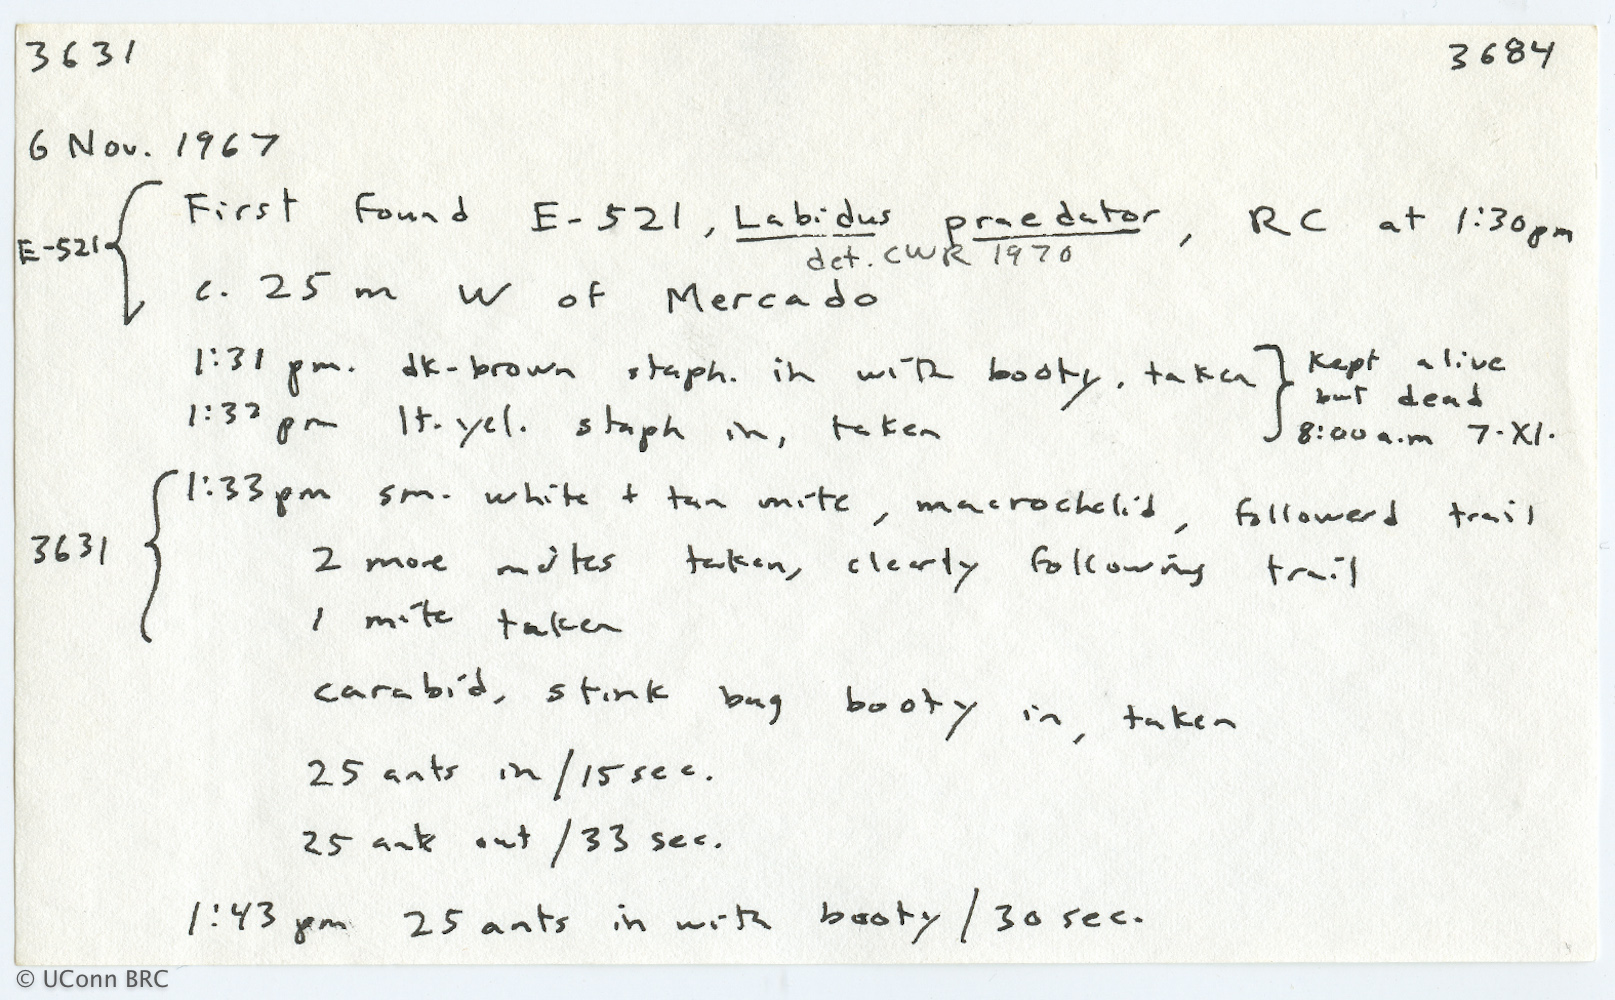 3631 3684
6 Nov. 1967
E-521 { First found E-521, Labidus praedator, RC at 1:30pm
det. CWR 1970
c. 25 m W of Mercado
1:31 pm. dk-brown staph. in with booty, taken } Kept alive
but dead
1:32 pm lt. yel. staph in, taken
8:00 a.m 7-XI.
1:33 pm sm. white + tan mite, macrochelid, followed trail
3631 { 2 more mites taken, clearly following trail
1 mite taken
carabid, stink bug booty in, taken
25 ants in/15 sec.
25 ants out/33 sec.
1:43 pm 25 ants in with booty/30 sec.
© UConn BRC